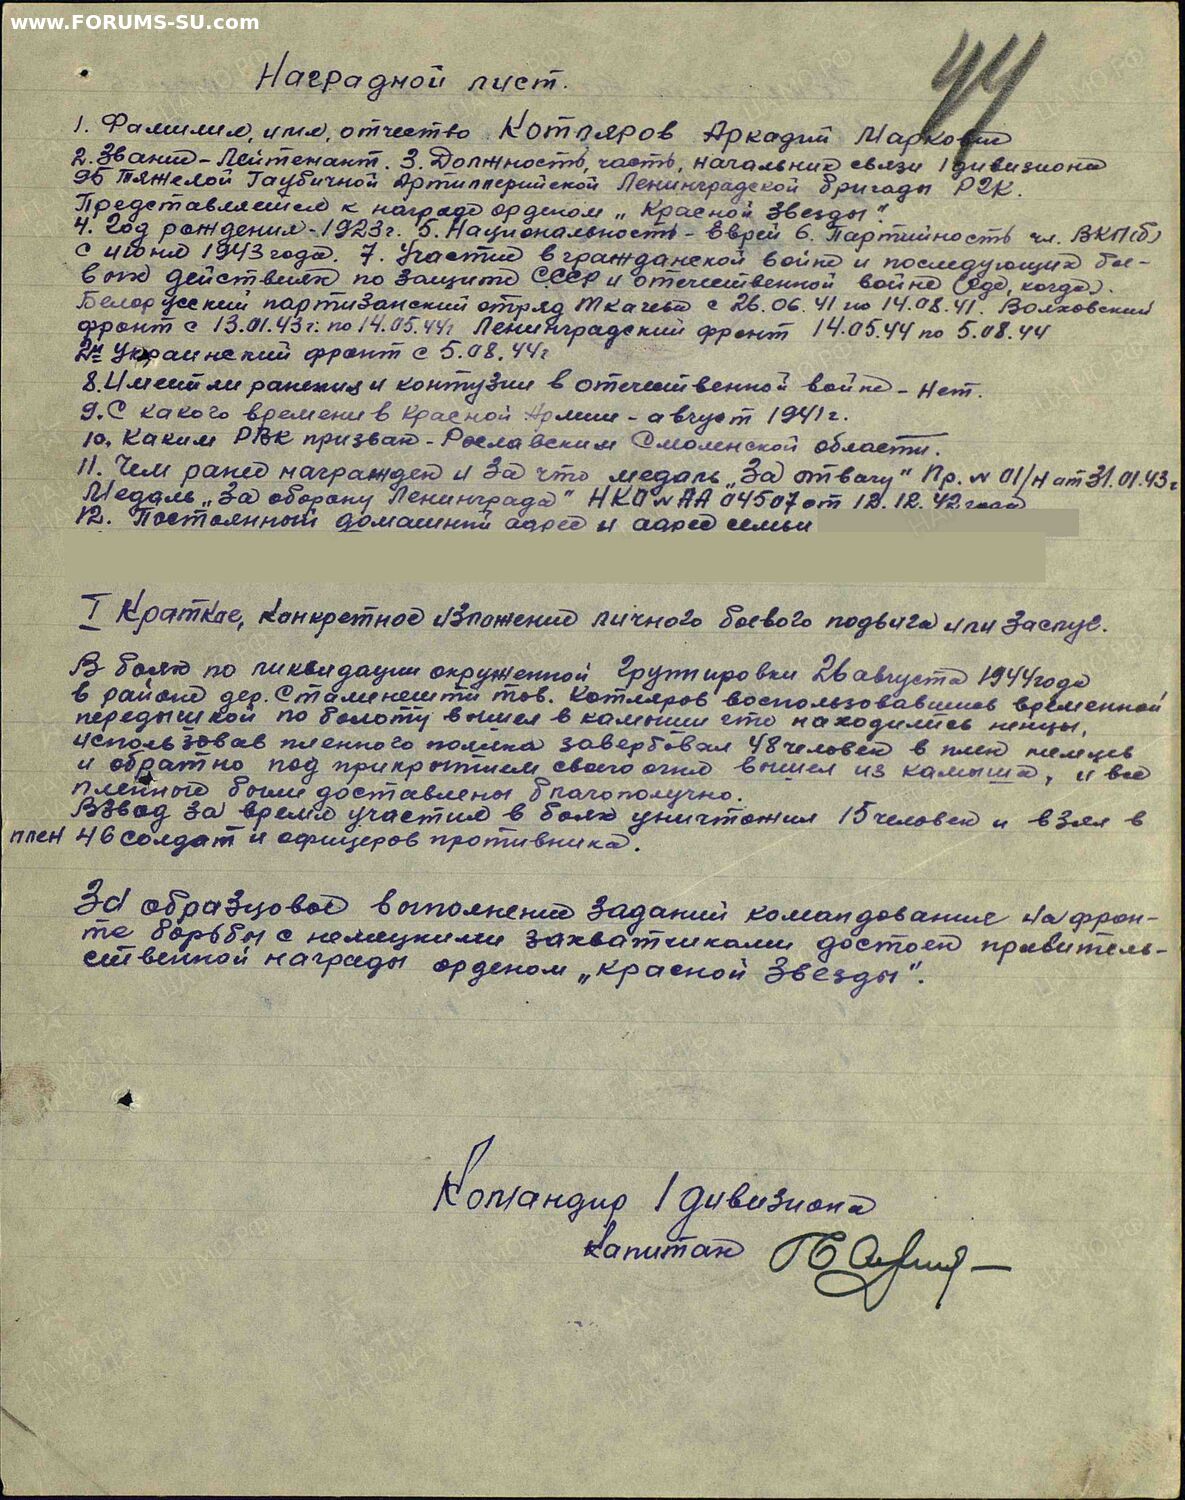 www.FORUMS-SU.com
44
Наградной лист.
1. Фамилия, имя, отчество Котляров Аркадий Маркович
2. Звание - Лейтенант. 3. Должность, часть, начальник связи 1 дивизиона
96 Тяжелой Гаубичной Артиллерийской Ленинградской бригады РГК.
Представляется к награде орденом „Красной Звезды".
4. Год рождения - 1923 г. 5. Национальность - Еврей 6. Партийность чл. ВКП(б)
с июня 1943 года. 7. Участие в гражданской войне и последующих бое-
вых действиях по защите СССР и отечественной войне (где, когда).
Белорусский партизанский отряд Ткачева с 26.06.41 по 14.08.41. Волховский
фронт с 13.01.43 г. по 14.05.44 г Ленинградский фронт 14.05.44 по 5.08.44
2й Украинский фронт с 5.08.44 г
8. Имеет ли ранения и контузии в отечественной войне - Нет.
9. С какого времени в Красной Армии - август 1941 г.
10. Каким РВК призван - Рославским Смоленской области.
11. Чем ранее награжден и за что медаль „За отвагу" Пр. № 01/Н от 31.01.43 г
Медаль „За оборону Ленинграда" НКО № АА 04507 от 12.12.42 года
12. Постоянный домашний адрес и адрес семьи
I Краткое, конкретное изложение личного боевого подвига или заслуг.
В боях по ликвидации окруженной группировки 26 августа 1944 года
в районе дер. Сталинешти тов. Котляров воспользовавшись временной
передышкой по болоту вышел в камыши где находились немцы,
использовав пленного поляка завербовал 48 человек в плен немцев
и обратно под прикрытием своего огня вышел из камыша, и все
пленные были доставлены благополучно.
Взвод за время участия в боях уничтожил 15 человек и взял в
плен 46 солдат и офицеров противника.
За образцовое выполнение заданий командования на фрон-
те борьбы с немецкими захватчиками достоен правитель-
ственной награды орденом „Красной Звезды".
Командир 1 дивизиона
капитан